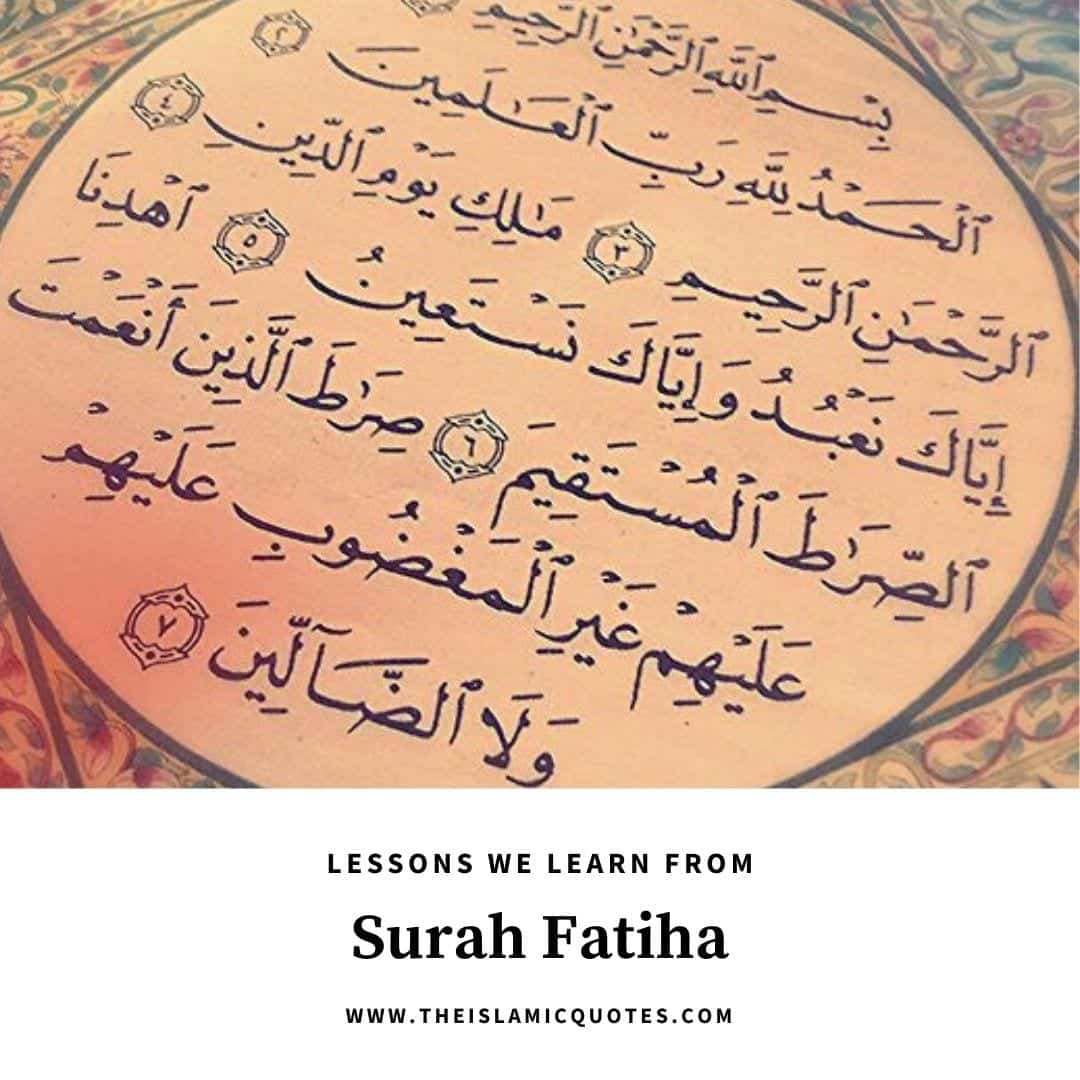 بِسْمِ ٱللَّهِ ٱلرَّحْمَٰنِ ٱلرَّحِيمِ
ٱلْحَمْدُ لِلَّهِ رَبِّ ٱلْعَٰلَمِينَ ٢
ٱلرَّحْمَٰنِ ٱلرَّحِيمِ ٣ مَٰلِكِ يَوْمِ ٱلدِّينِ ٤
إِيَّاكَ نَعْبُدُ وَإِيَّاكَ نَسْتَعِينُ ٥ ٱهْدِنَا
ٱلصِّرَٰطَ ٱلْمُسْتَقِيمَ ٦ صِرَٰطَ ٱلَّذِينَ أَنْعَمْتَ
عَلَيْهِمْ غَيْرِ ٱلْمَغْضُوبِ عَلَيْهِمْ
وَلَا ٱلضَّآلِّينَ ٧
LESSONS WE LEARN FROM
Surah Fatiha
WWW.THEISLAMICQUOTES.COM